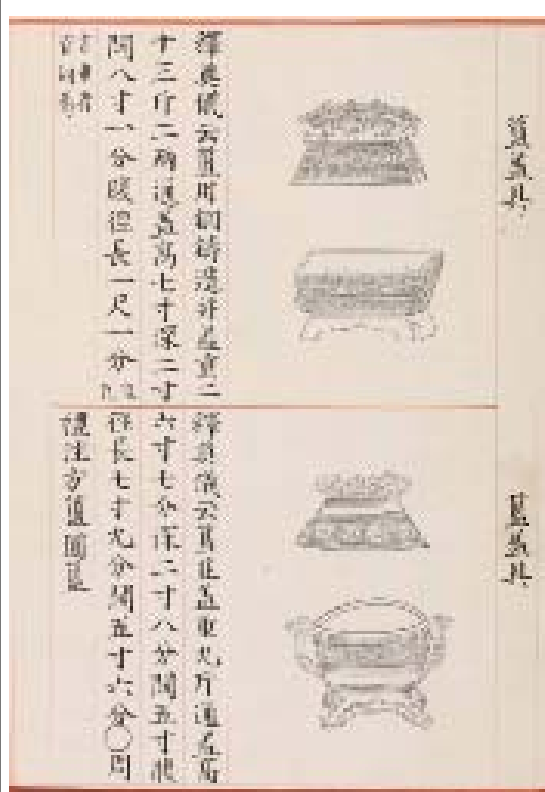 簠蓋具
釋奠儀云簠用銅鑄造并蓋重二
十三斤二兩通蓋高七寸深二寸
闊八寸一分腹徑長一尺一分
簋蓋具
釋奠儀云簋並蓋重九斤通蓋高
六寸七分深二寸八分闊五寸腹
徑長七寸九分闊五寸六分〇周
禮注方簠圓簋